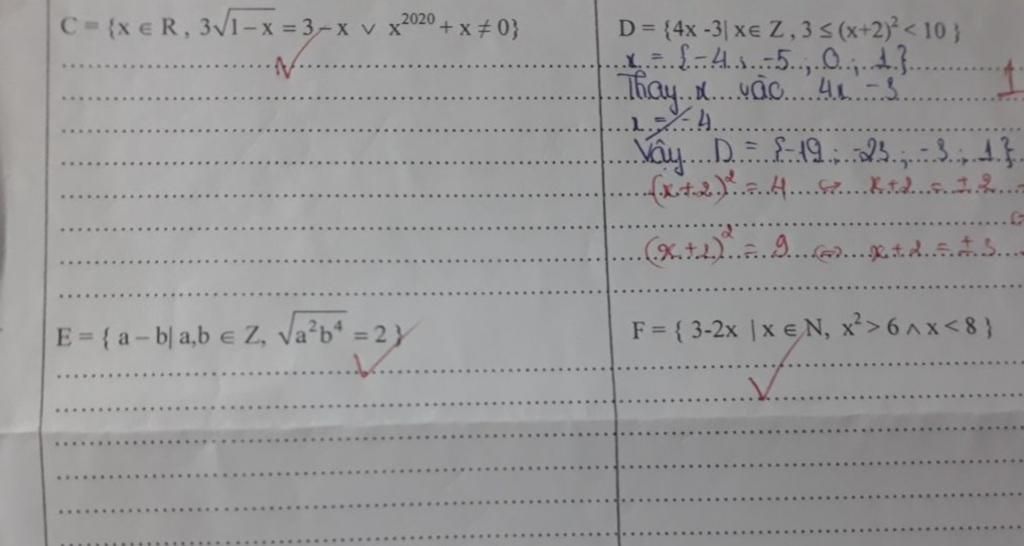 C = {x ∈ R , 3√(1-x) = 3 - x ∨ x²⁰²⁰ + x ≠ 0}
D = {4x -3| x∈ Z , 3 ≤ (x+2)² < 10 }
x = {-4 ; -5 ; 0 ; 1}
Thay x vào 4x - 3
x = -4
Vậy D = {-19 ; -23 ; -3 ; 1}
(x+2)² = 4 ⇔ x+2 = ±2
(x+2)² = 9 ⇔ x+2 = ±3
E = { a – b| a,b ∈ Z, √(a²b⁴) = 2 }
F = { 3-2x | x ∈ N, x² > 6 ∧ x < 8 }